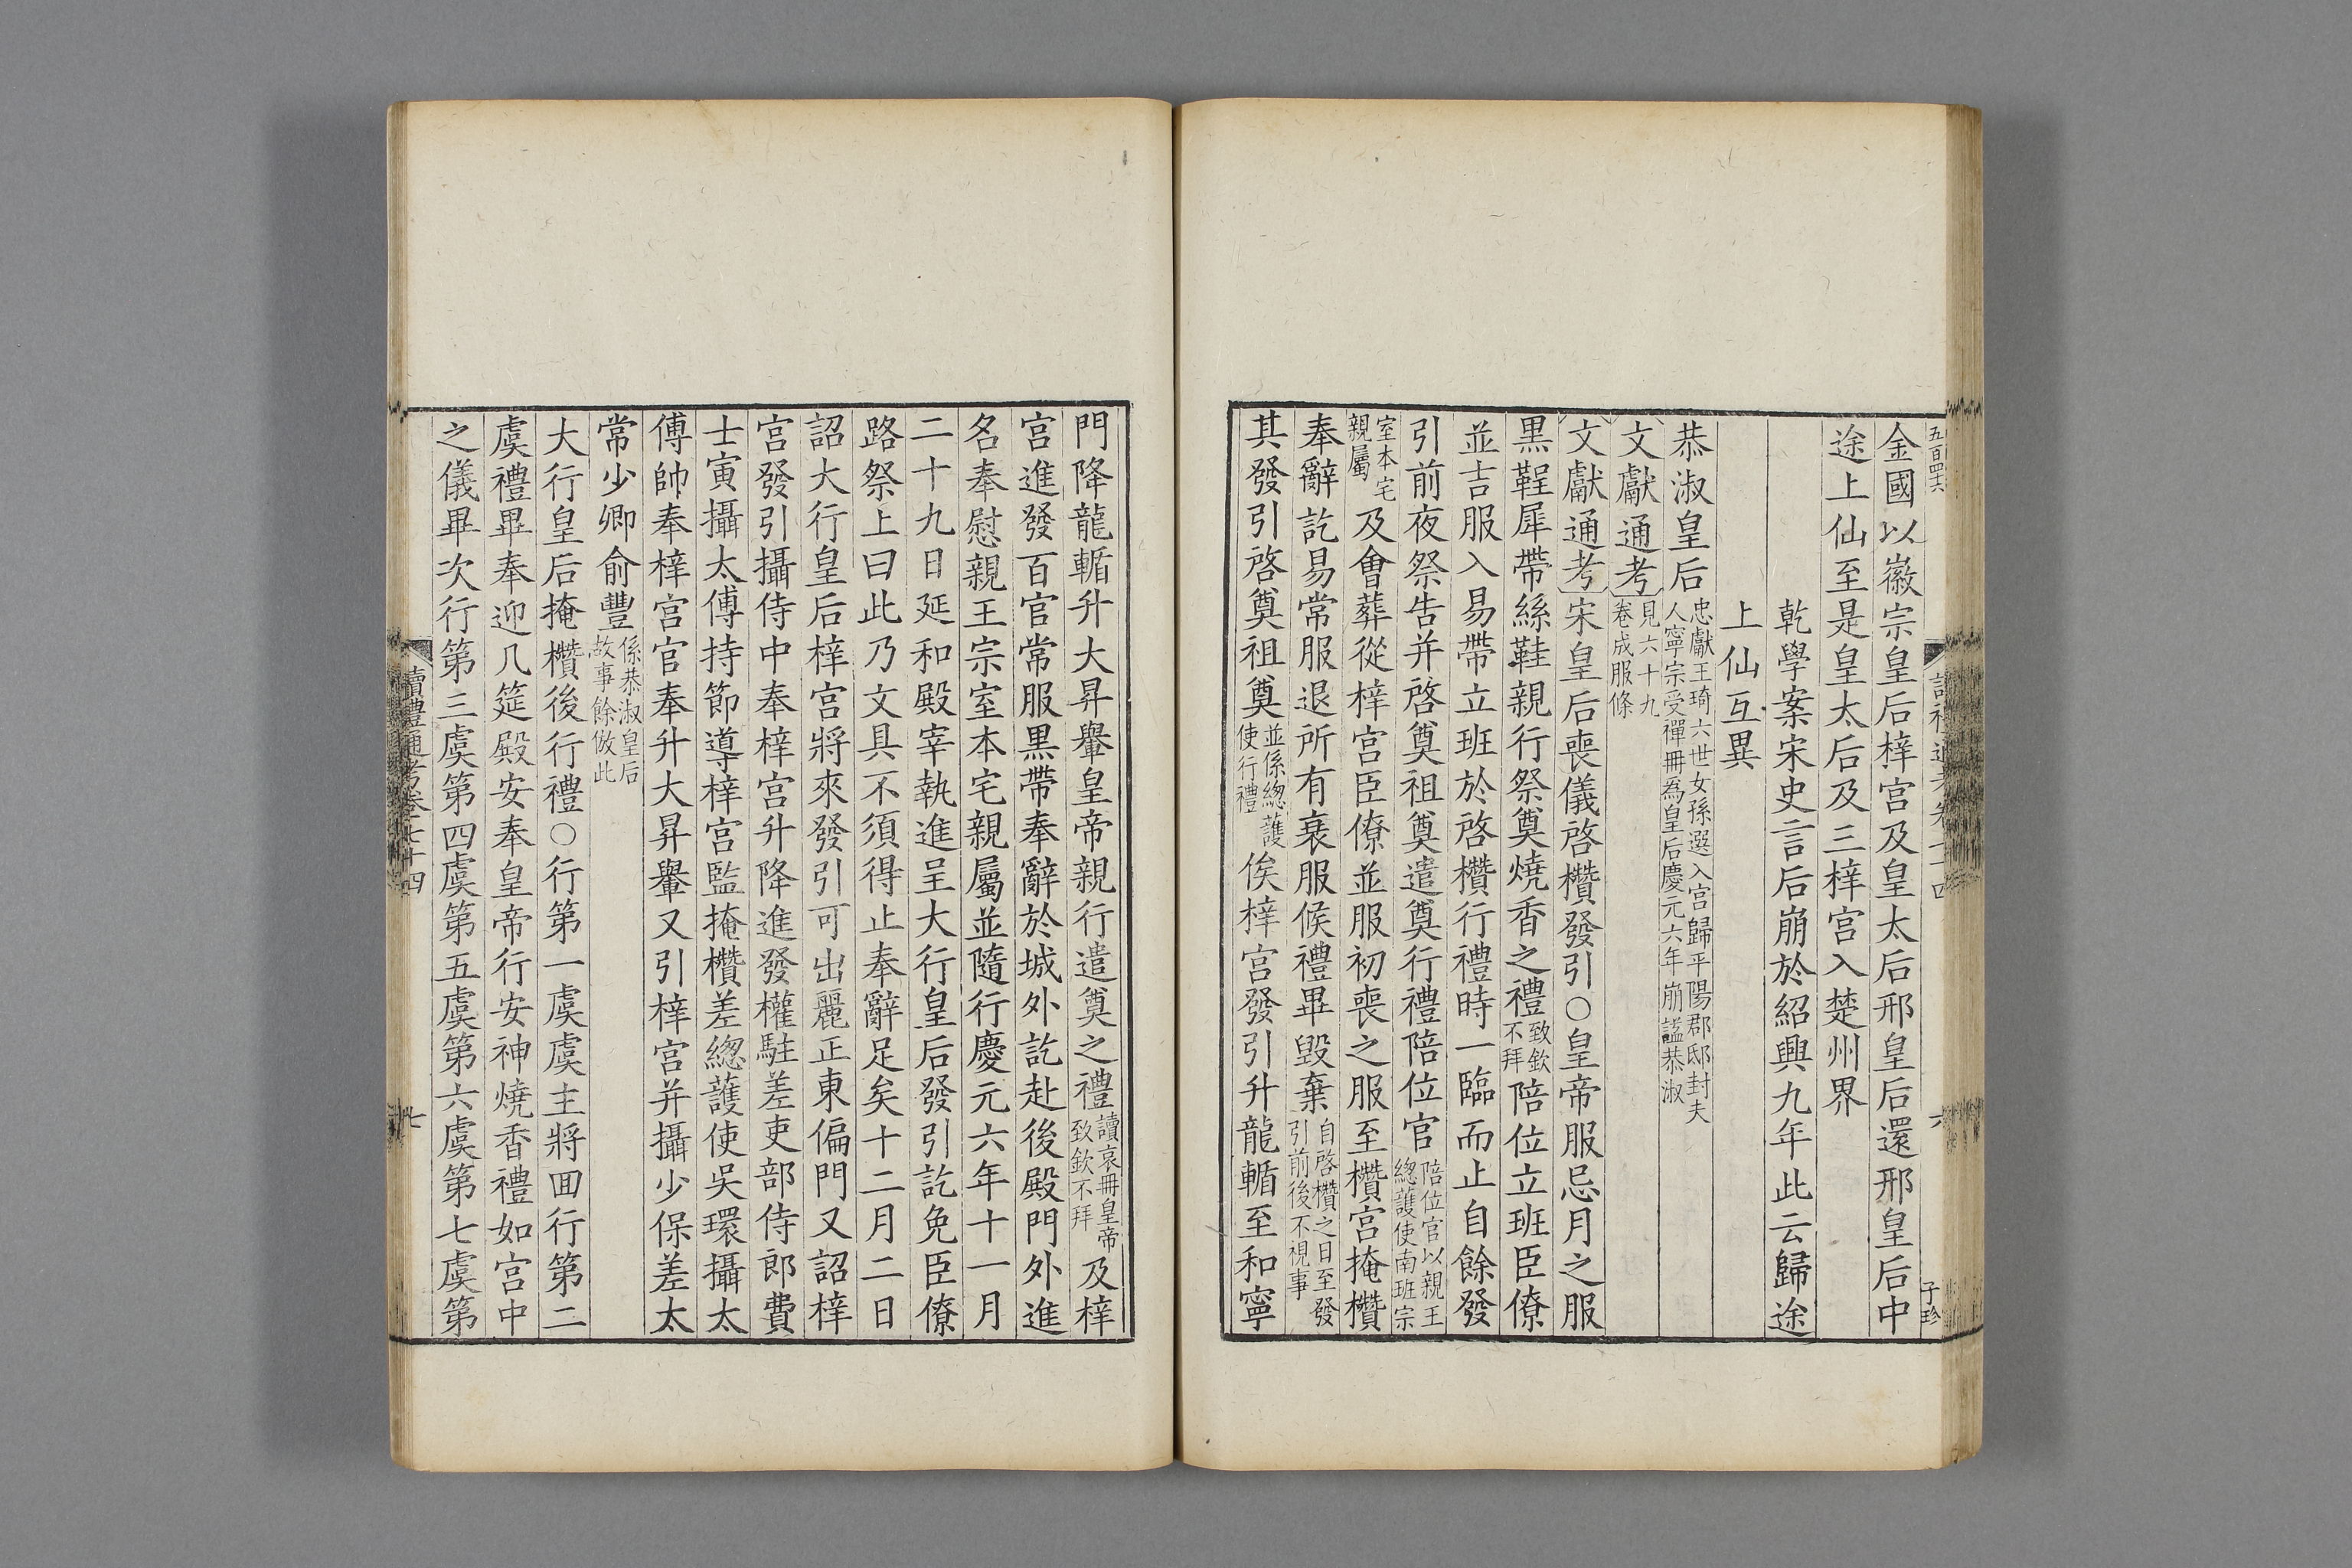 五百四十六
子珍
六
金國以徽宗皇后梓宮及皇太后邢皇后還邢皇后中
途上仙至是皇太后及三梓宮入楚州界
乾學案宋史言后崩於紹興九年此云歸途
上仙互異
恭淑皇后忠獻王琦六世女孫選入宮歸平陽郡邸封夫
人寧宗受禪冊爲皇后慶元六年崩諡恭淑
文獻通考見六十九
卷成服條
文獻通考宋皇后喪儀啓欑發引○皇帝服忌月之服
黑鞓犀帶絲鞋親行祭奠燒香之禮致欽
不拜陪位立班臣僚
並吉服入易帶立班於啓欑行禮時一臨而止自餘發
引前夜祭告并啓奠祖奠遣奠行禮陪位官陪位官以親王
總護使南班宗
室本宅
親屬及會葬從梓宮臣僚並服初喪之服至欑宮掩欑
奉辭訖易常服退所有衰服候禮畢毀棄自啓欑之日至發
引前後不視事
其發引啓奠祖奠並係總護
使行禮俟梓宮發引升龍輴至和寧
門降龍輴升大昇轝皇帝親行遣奠之禮讀哀冊皇帝
致欽不拜及梓
宮進發百官常服黑帶奉辭於城外訖赴後殿門外進
名奉慰親王宗室本宅親屬並隨行慶元六年十一月
二十九日延和殿宰執進呈大行皇后發引訖免臣僚
路祭上曰此乃文具不須得止奉辭足矣十二月二日
詔大行皇后梓宮將來發引可出麗正東偏門又詔梓
宮發引攝侍中奉梓宮升降進發權駐差吏部侍郎費
士寅攝太傅持節導梓宮監掩欑差總護使吳環攝太
傅帥奉梓宮官奉升大昇轝又引梓宮并攝少保差太
常少卿俞豐係恭淑皇后
故事餘倣此
大行皇后掩欑後行禮○行第一虞虞主將回行第二
虞禮畢奉迎几筵殿安奉皇帝行安神燒香禮如宮中
之儀畢次行第三虞第四虞第五虞第六虞第七虞第
讀禮通考卷七十四
七